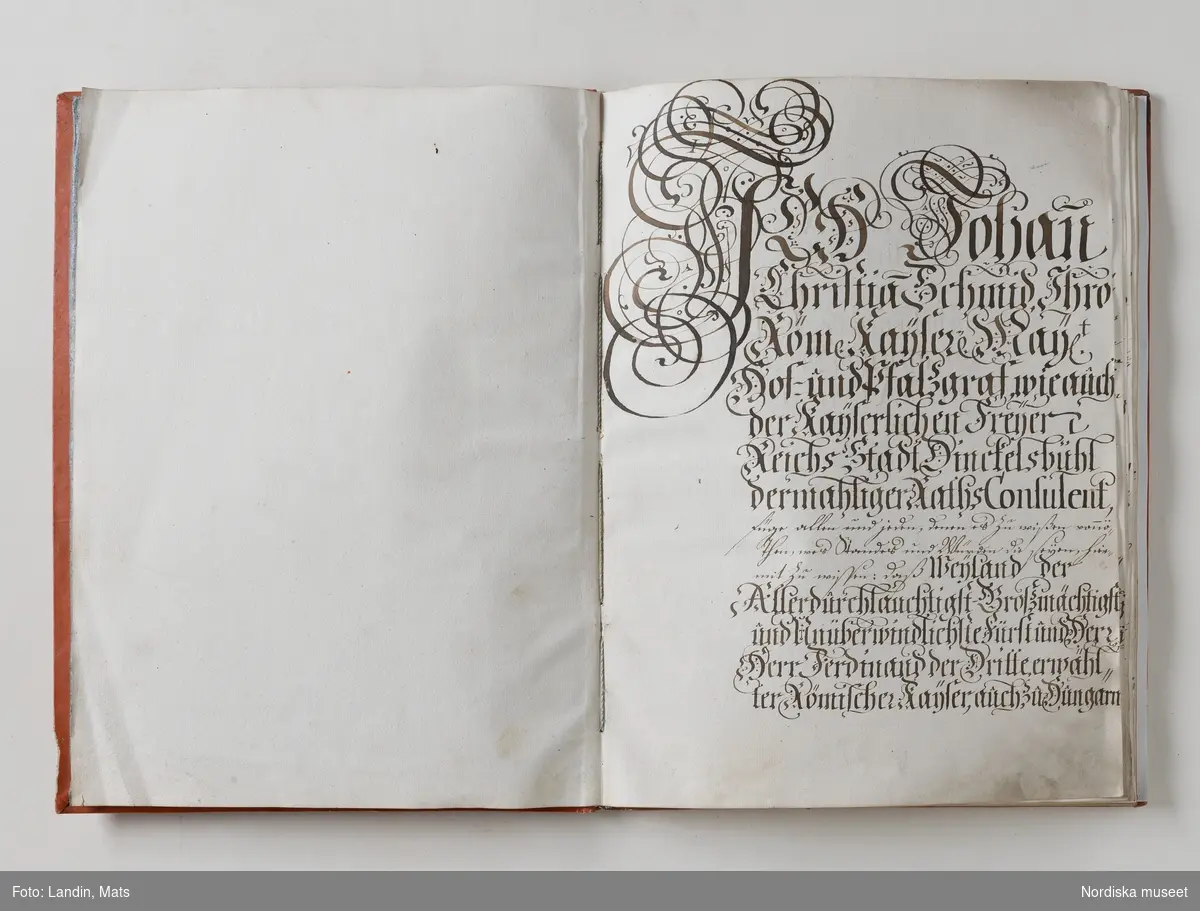 ICH Johañ
Christiã Schmid, Ihro
Röm. Kayser. May.t
Hof- und Pfaltzgraf, wie auch
der Kayserlichen Freyen
Reichs Stadt Dinckelsbühl
dermahliger Raths Consulent,
füge allen und jeden, denen es zu wißen vonnö„
then, wes Standes und Würden die seyen, hie„
mit zu wissen: daß Weyland der
Allerdurchlauchtigst-Großmächtigst„
und Unüberwindlichste Fürst und Herr,
Herr Ferdinand der Dritte, erwähl„
ter Römischer Kayser, auch zu Hungarn
Foto: Landin, Mats
Nordiska museet